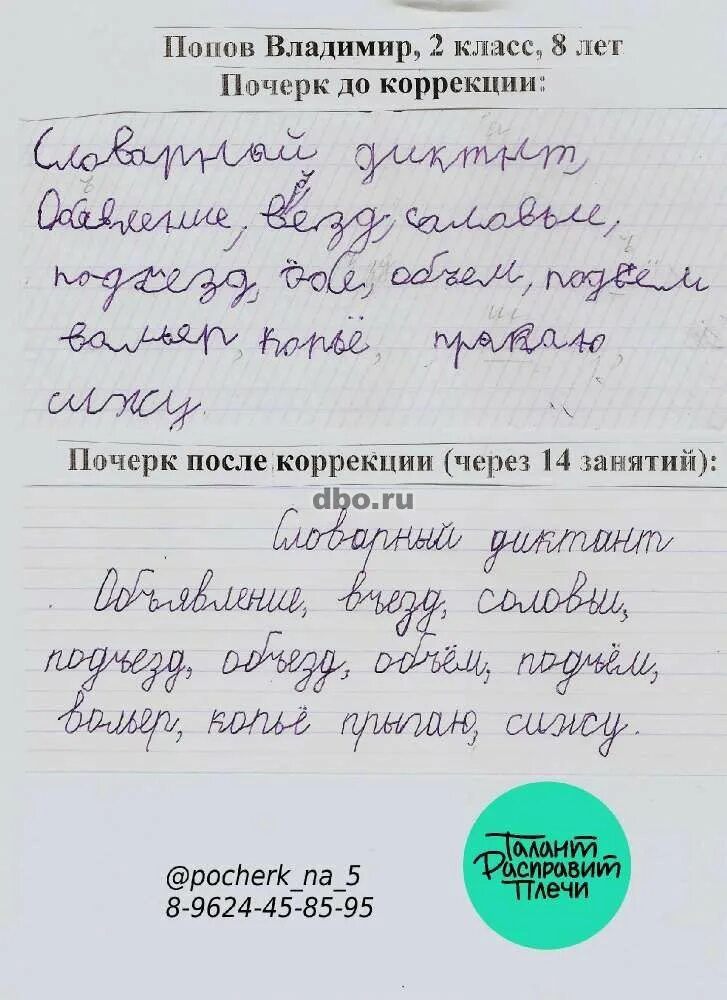 Попов Владимир, 2 класс, 8 лет
Почерк до коррекции:
Словарный диктнт,
Обявление, везд, саловьи,
подъезд, обе, объем, подъём
вальер, копьё, пракаю,
сижу.
Почерк после коррекции (через 14 занятий):
dbo.ru
Словарный диктант
Объявление, въезд, соловьи,
подъезд, объезд, объём, подъём,
вольер, копьё прыгаю, сижу.
@pocherk_na_5
8-9624-45-85-95
Талант
Расправит
Плечи